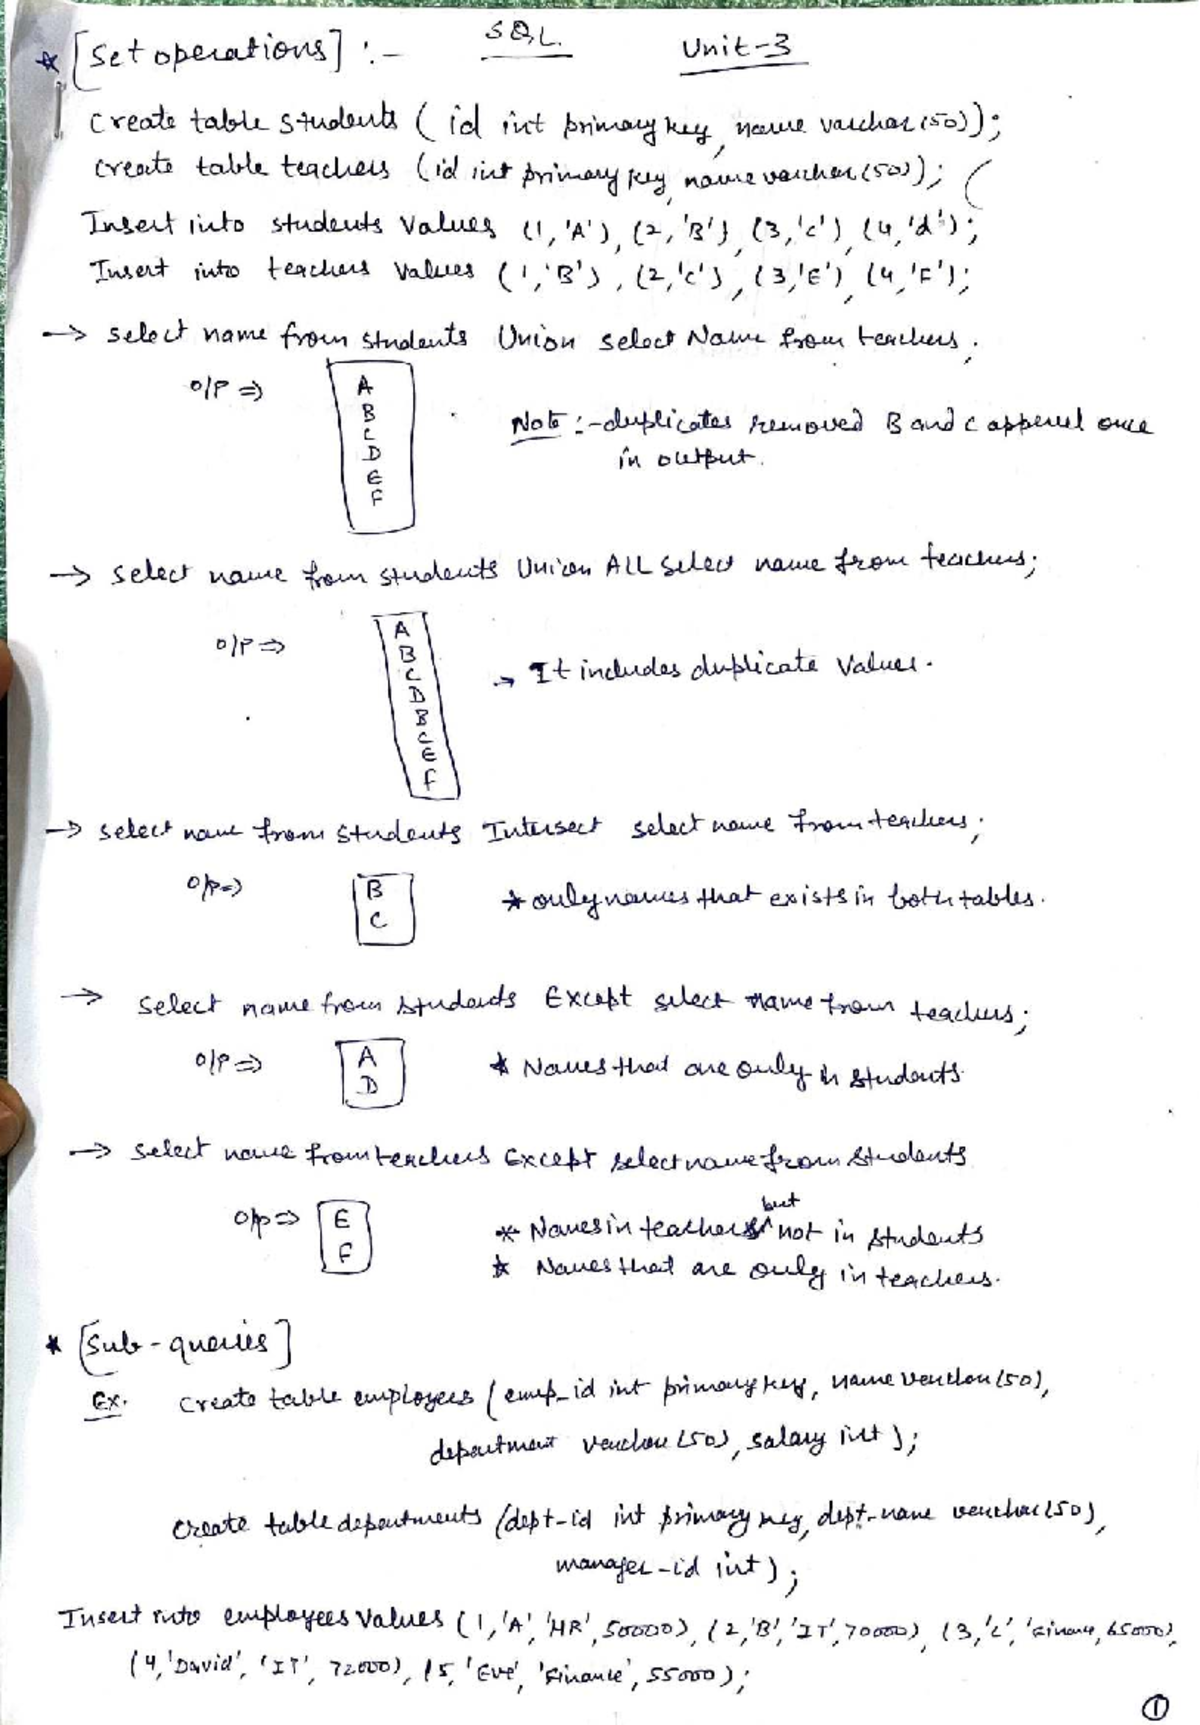 SQL.
Unit-3
* [Set operations] :-
Create table students ( id int primary key, name varchar(50));
Create table teachers (id int primary key, name varchar(50)); (
Insert into students values (1,'A'), (2,'B'), (3,'c'), (4,'d');
Insert into teachers values (1,'B'), (2,'c'), (3,'E'), (4,'F');
→ select name from students Union select Name from teachers;
o/p ⇒
A
B
C
D
E
F
Note :- duplicates removed B and c appered once
in output.
→ select name from students Union ALL select name from teachers;
o/p ⇒
A
B
C
D
B
C
E
F
→ It includes duplicate values.
→ select name from students Intersect select name from teachers;
o/p ⇒
B
C
* only names that exists in both tables.
→ select name from students Except select name from teachers;
o/p ⇒
A
D
* Names that are only in students
→ select name from teachers Except select name from students
o/p ⇒
E
F
* Names in teachers but not in students
* Names that are only in teachers.
* [Sub-queries]
Ex. Create table employees (emp_id int primary key, name varchar(50),
department varchar(50), salary int);
Create table departments (dept-id int primary key, dept-name varchar(50),
manager-id int);
Insert into employees values (1,'A','HR',50000), (2,'B','IT',70000), (3,'C','Finance, 65000),
(4,'David', 'IT', 72000), (5,'Eve', 'Finance', 55000);
1